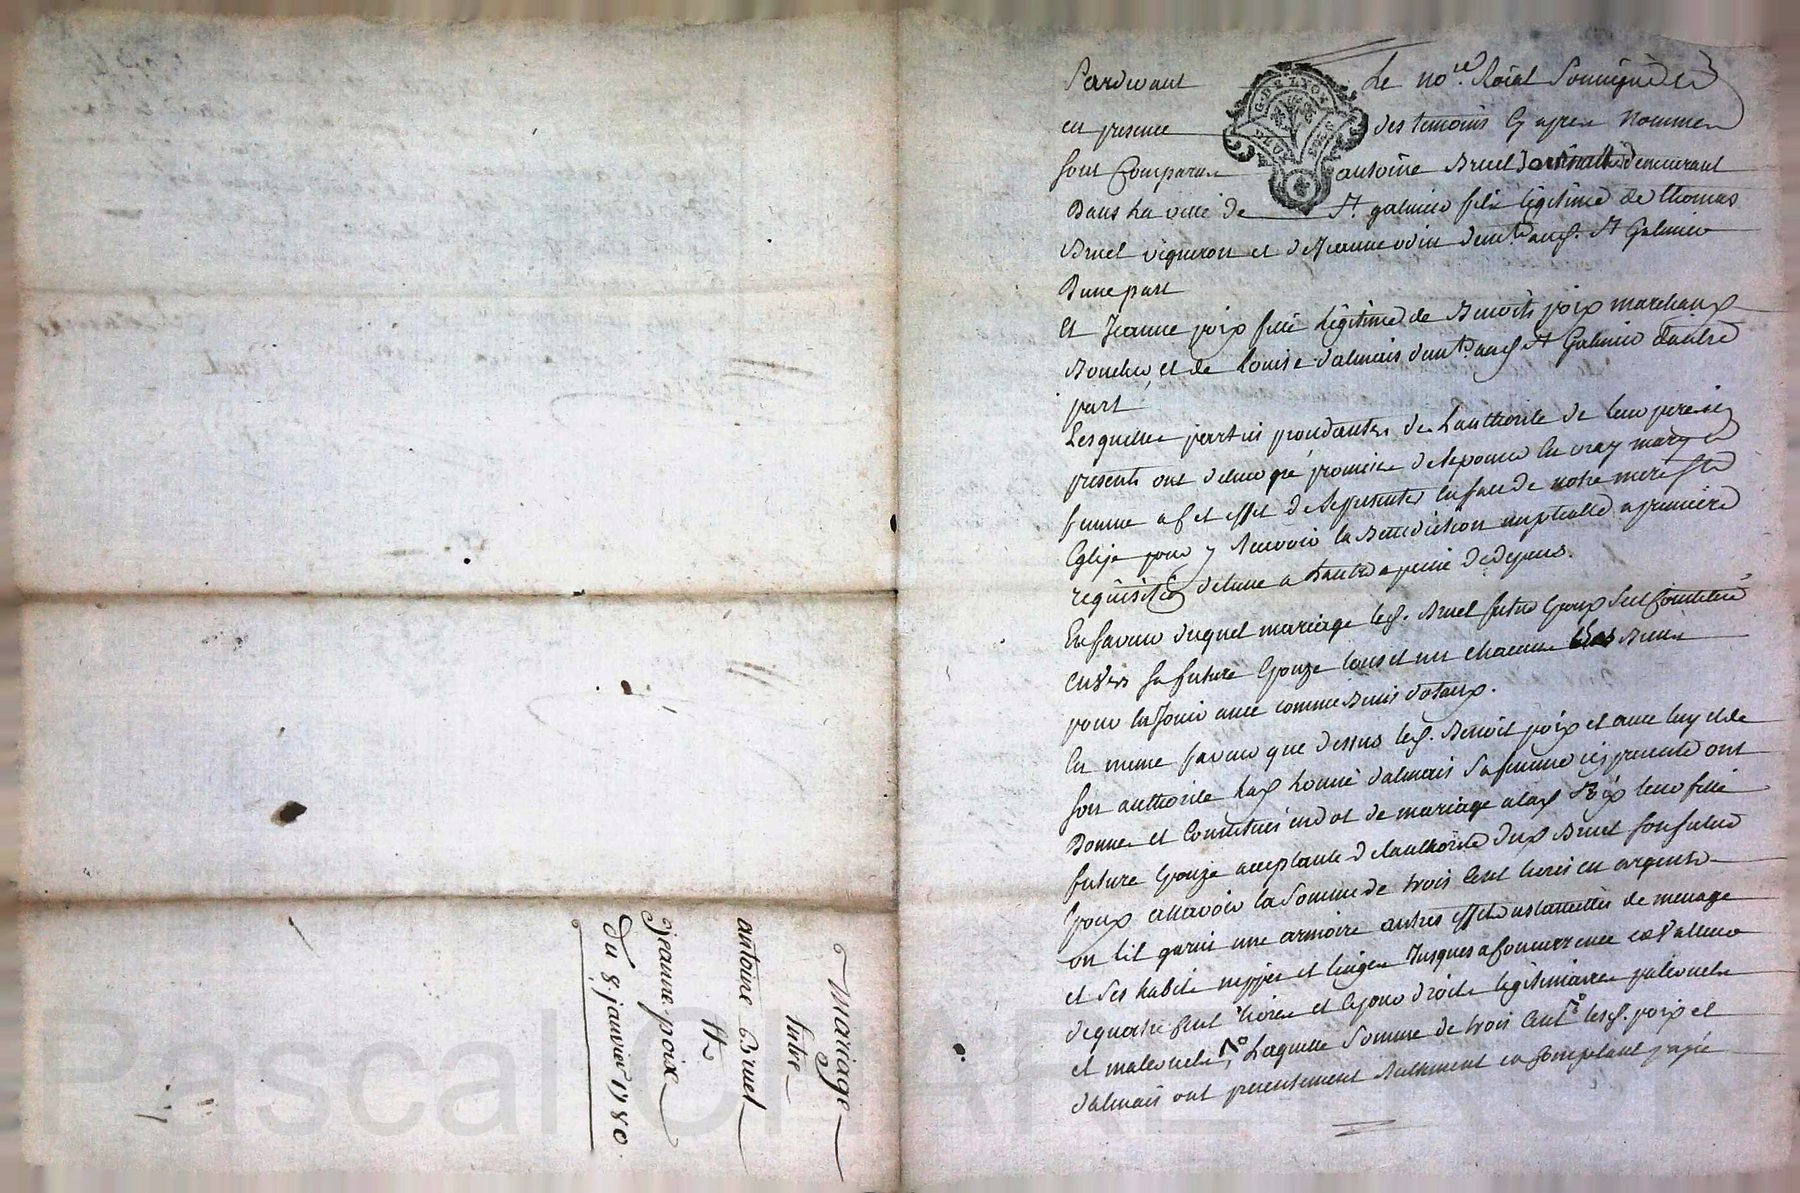 Mariage
Entre
antoine Bruel
Et
jeanne poix
du 8 janvier 1780
G. DE LYON
Pardevant Le no.re Roial Soussigné Et
en presence des temoins Cy apres Nommes
sont Comparus antoine Bruel demeurant
Dans La ville de St. galmier fils legitime de thomas
Bruel vigneron et de Jeanne odin dem.t aud. St Galmier
Dune part
Et Jeanne poix fille legitime de Benoit poix marchand
Boucher et de Louise dalmais dem.t aud St Galmier dautre
part
Lesquelles parties procedantes de Lauthorité de leur pere icy
presents ont de leur gré promis de Sepouser en vray mary et
femme a cet effet de Se presenter en face de notre mere Ste
Eglise pour y Recevoir la Benediction nuptialle a premiere
requisition de lune a Lautre a peine de depens.
En faveur duquel mariage led. Bruel futur Epoux Sest Constitué
envers sa future Epouze tous et un chacun Biens
pour En Jouir avec comme Biens dotaux.
En meme faveur que dessus led. Benoit poix et avec luy et de
son authorité Lad Louise dalmais Sa femme icy presente ont
Donné et Constitués en dot de mariage a lad poix leur fille
future Epouze acceptante de lauthorité dud Bruel son futur
Epoux a Scavoir la Somme de trois Cent livres en argent
un lit garni une armoire autres effets ustancilles de menage
et Ses habits nippes et linges Jusques a Concurrence valleur
de quatre Cent livres et ce pour droits legitimaires paternels
et maternels Laquelle Somme de trois Cent lesd. poix et
dalmais ont presentement Reelement Comptant payé
Pascal CHARENTON